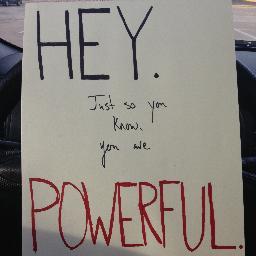 HEY.
Just so you
know,
you are
POWERFUL.